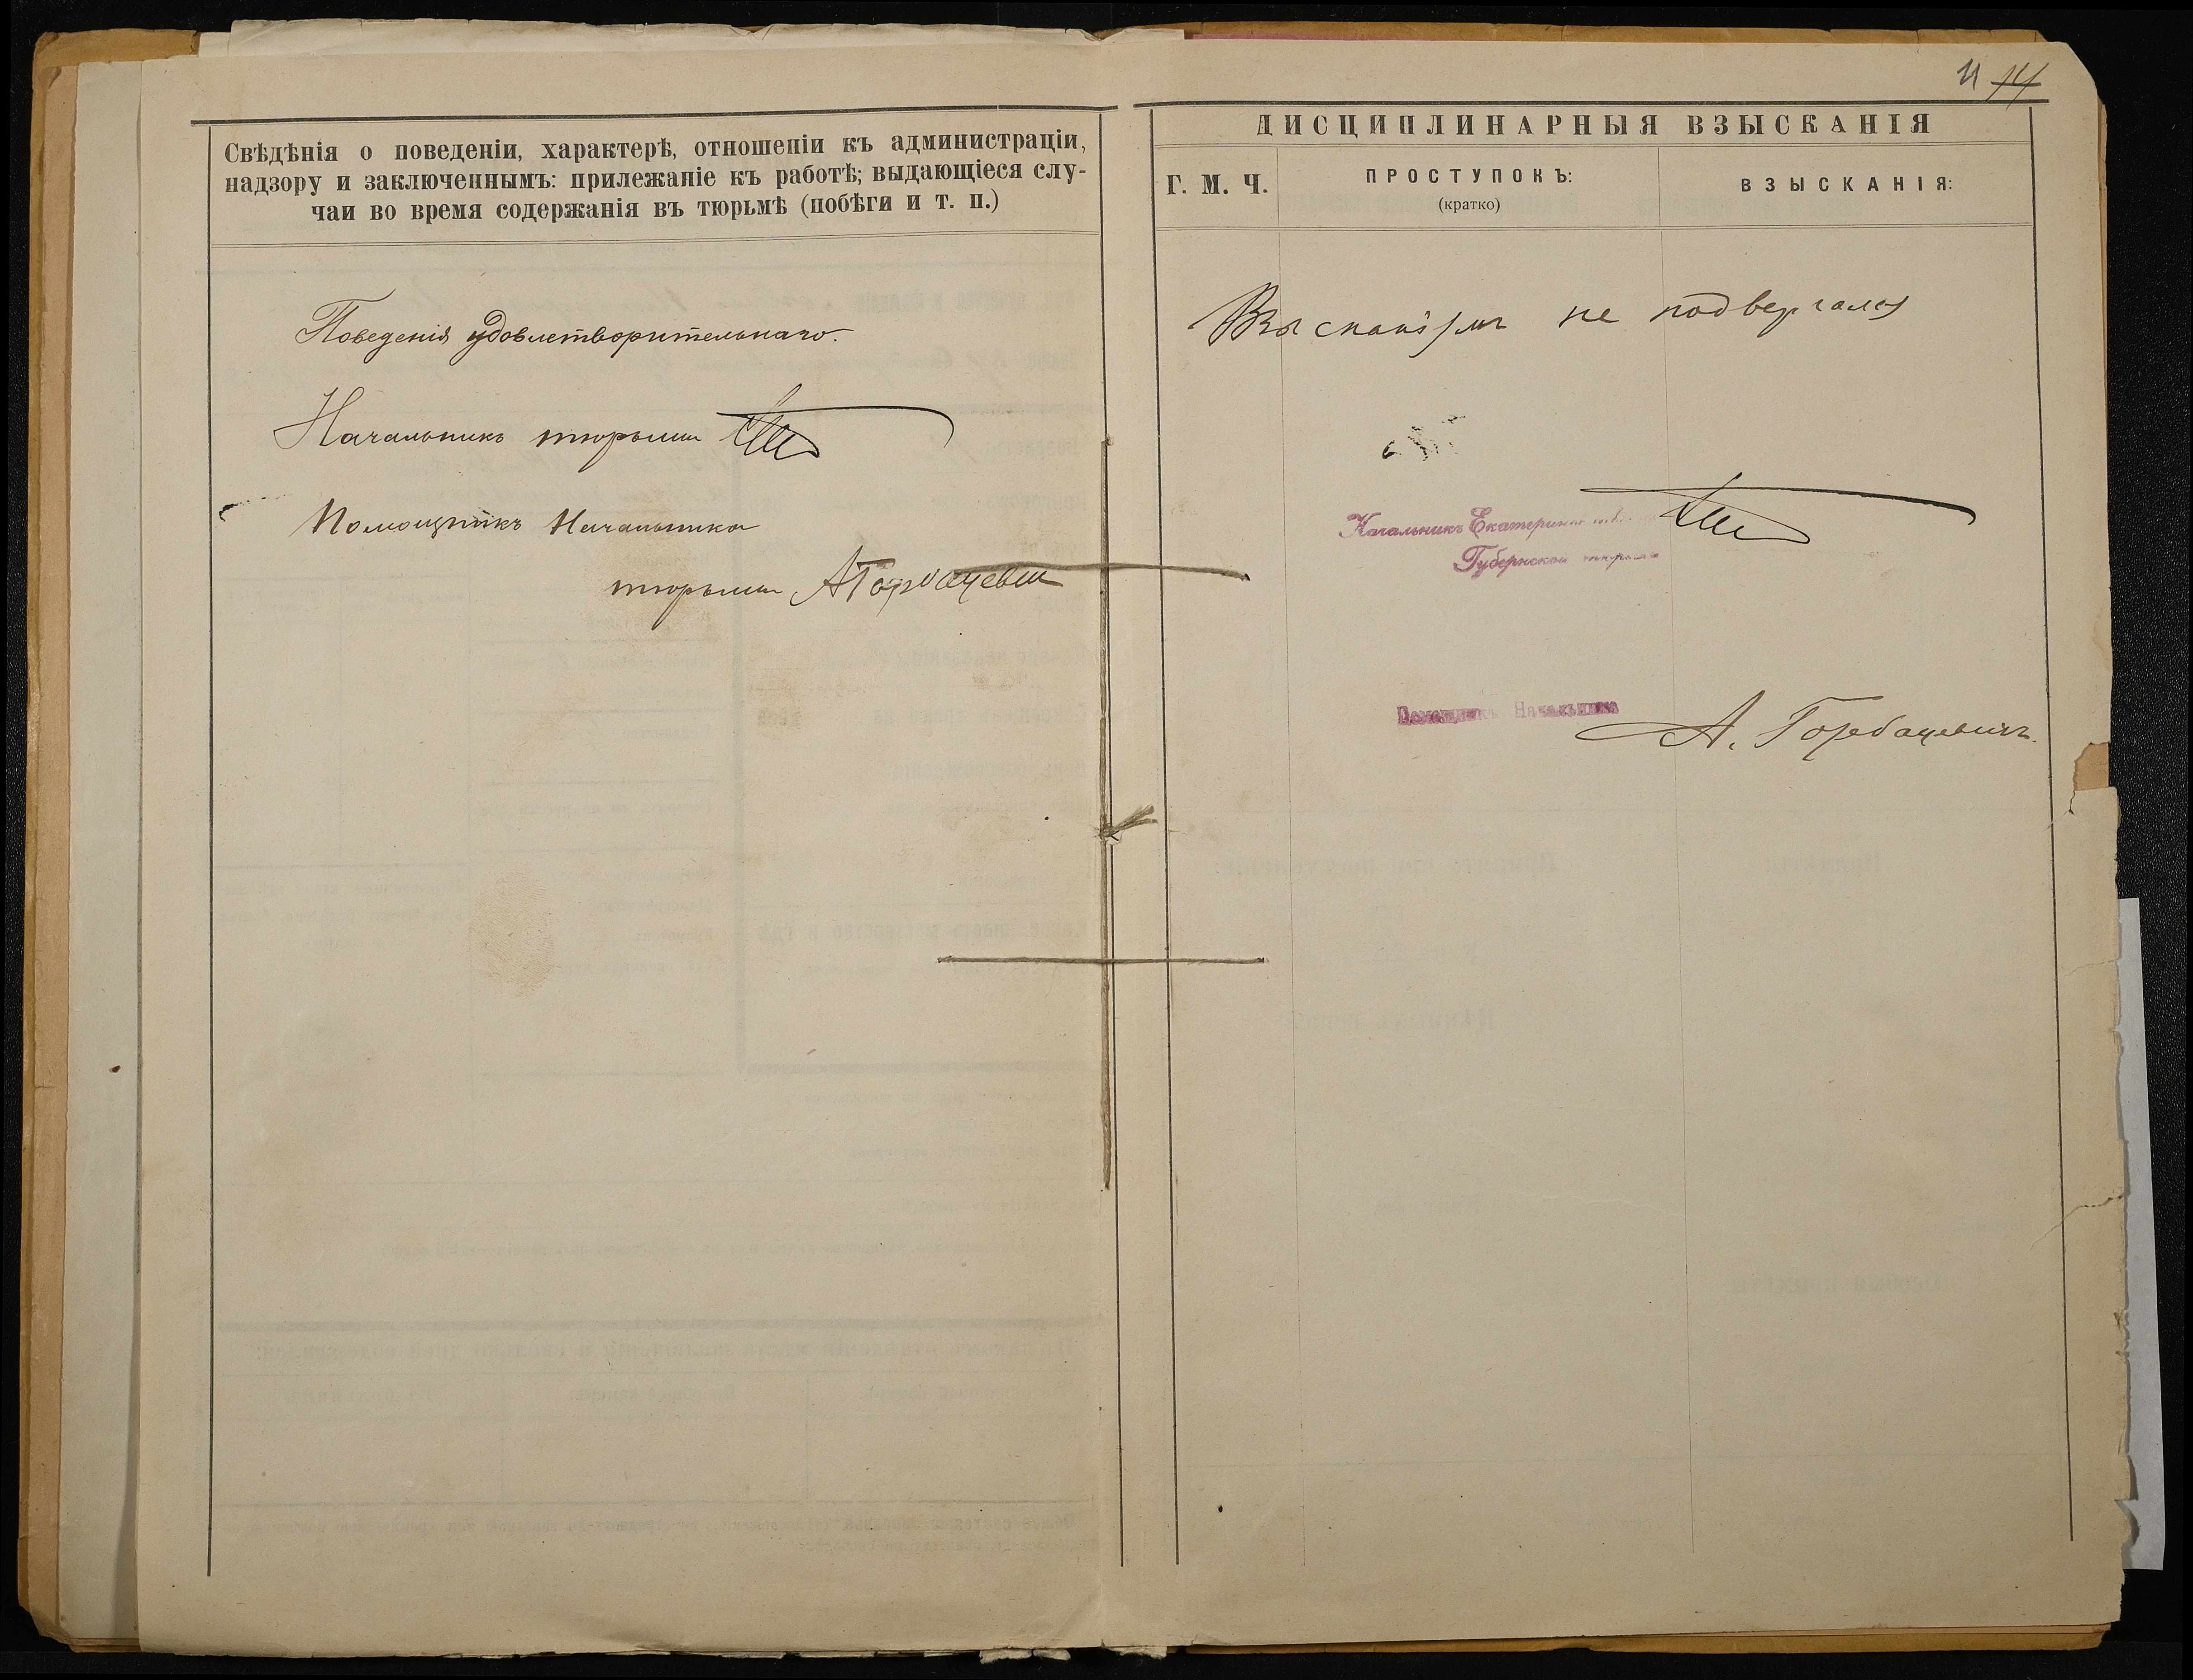 11 14
Свѣдѣнія о поведеніи, характерѣ, отношеніи къ администраціи,
надзору и заключеннымъ: прилежаніе къ работѣ; выдающіеся слу-
чаи во время содержанія въ тюрьмѣ (побѣги и т. п.)
Поведенія удовлетворительнаго.
Начальникъ тюрьмы
Помощникъ Начальника
тюрьмы АГорбацевич
ДИСЦИПЛИНАРНЫЯ ВЗЫСКАНІЯ
Г. М. Ч.
ПРОСТУПОКЪ:
(кратко)
ВЗЫСКАНІЯ:
Взысканіямъ не подвергался
Начальникъ Екатеринославской
Губернской тюрьмы
Помощникъ Начальника
А. Горбацевичъ